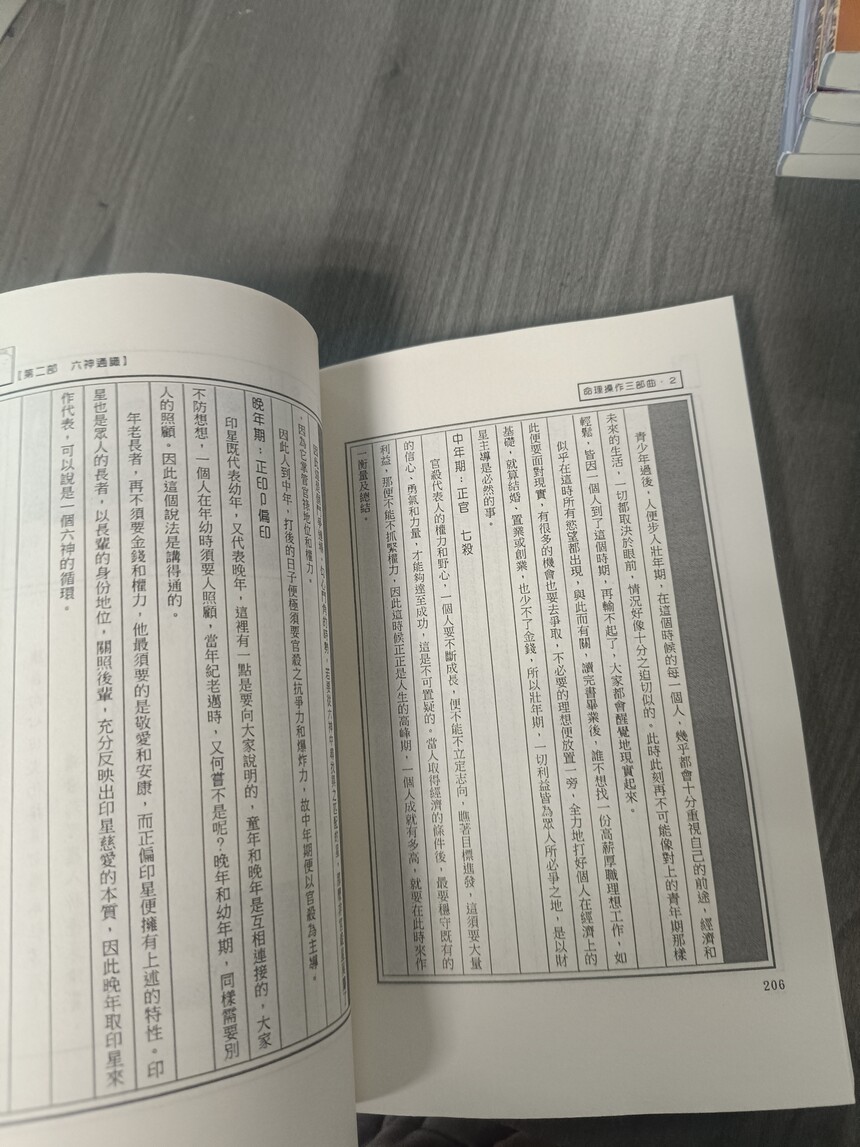 命理操作三部曲·2
青少年過後，人便步入壯年期，在這個時候的每一個人，幾乎都會十分重視自己的前途，經濟和
未來的生活，一切都取決於眼前，情況好像十分之迫切似的。此時此刻再不可能像對上的青年期那樣
輕鬆，皆因一個人到了這個時期，再輸不起了，大家都會醒覺地現實起來。
似乎在這時所有慾望都出現，與此而有關，讀完書畢業後，誰不想找一份高薪厚職理想工作，如
此便要面對現實，有很多的機會也要去爭取，不必要的理想便放置一旁，全力地打好個人在經濟上的
基礎，就算結婚、置業或創業，也少不了金錢，所以壯年期，一切利益皆為眾人所必爭之地，是以財
星主導是必然的事。
中年期：正官　七殺
官殺代表人的權力和野心，一個人要不斷成長，便不能不立定志向，瞧著目標進發，這須要大量
的信心、勇氣和力量，才能夠達至成功，這是不可置疑的。當人取得經濟的條件後，最要穩守既有的
利益，那便不能不抓緊權力，因此這時候正正是人生的高峰期，一個人成就有多高，就要在此時來作
一衡量及總結。
206
【第二部　六神通識】
因為它掌管官祿地位和權力。
因此人到中年，打後的日子便極須要官殺之抗爭力和爆炸力，故中年期便以官殺為主導。
晚年期：正印卩偏印
印星既代表幼年，又代表晚年，這裡有一點是要向大家說明的，童年和晚年是互相連接的，大家
不防想想，一個人在年幼時須要人照顧，當年紀老邁時，又何嘗不是呢？晚年和幼年期，同樣需要別
人的照顧。因此這個說法是講得通的。
年老長者，再不須要金錢和權力，他最須要的是敬愛和安康，而正偏印星便擁有上述的特性。印
星也是眾人的長者，以長輩的身份地位，關照後輩，充分反映出印星慈愛的本質，因此晚年取印星來
作代表，可以說是一個六神的循環。